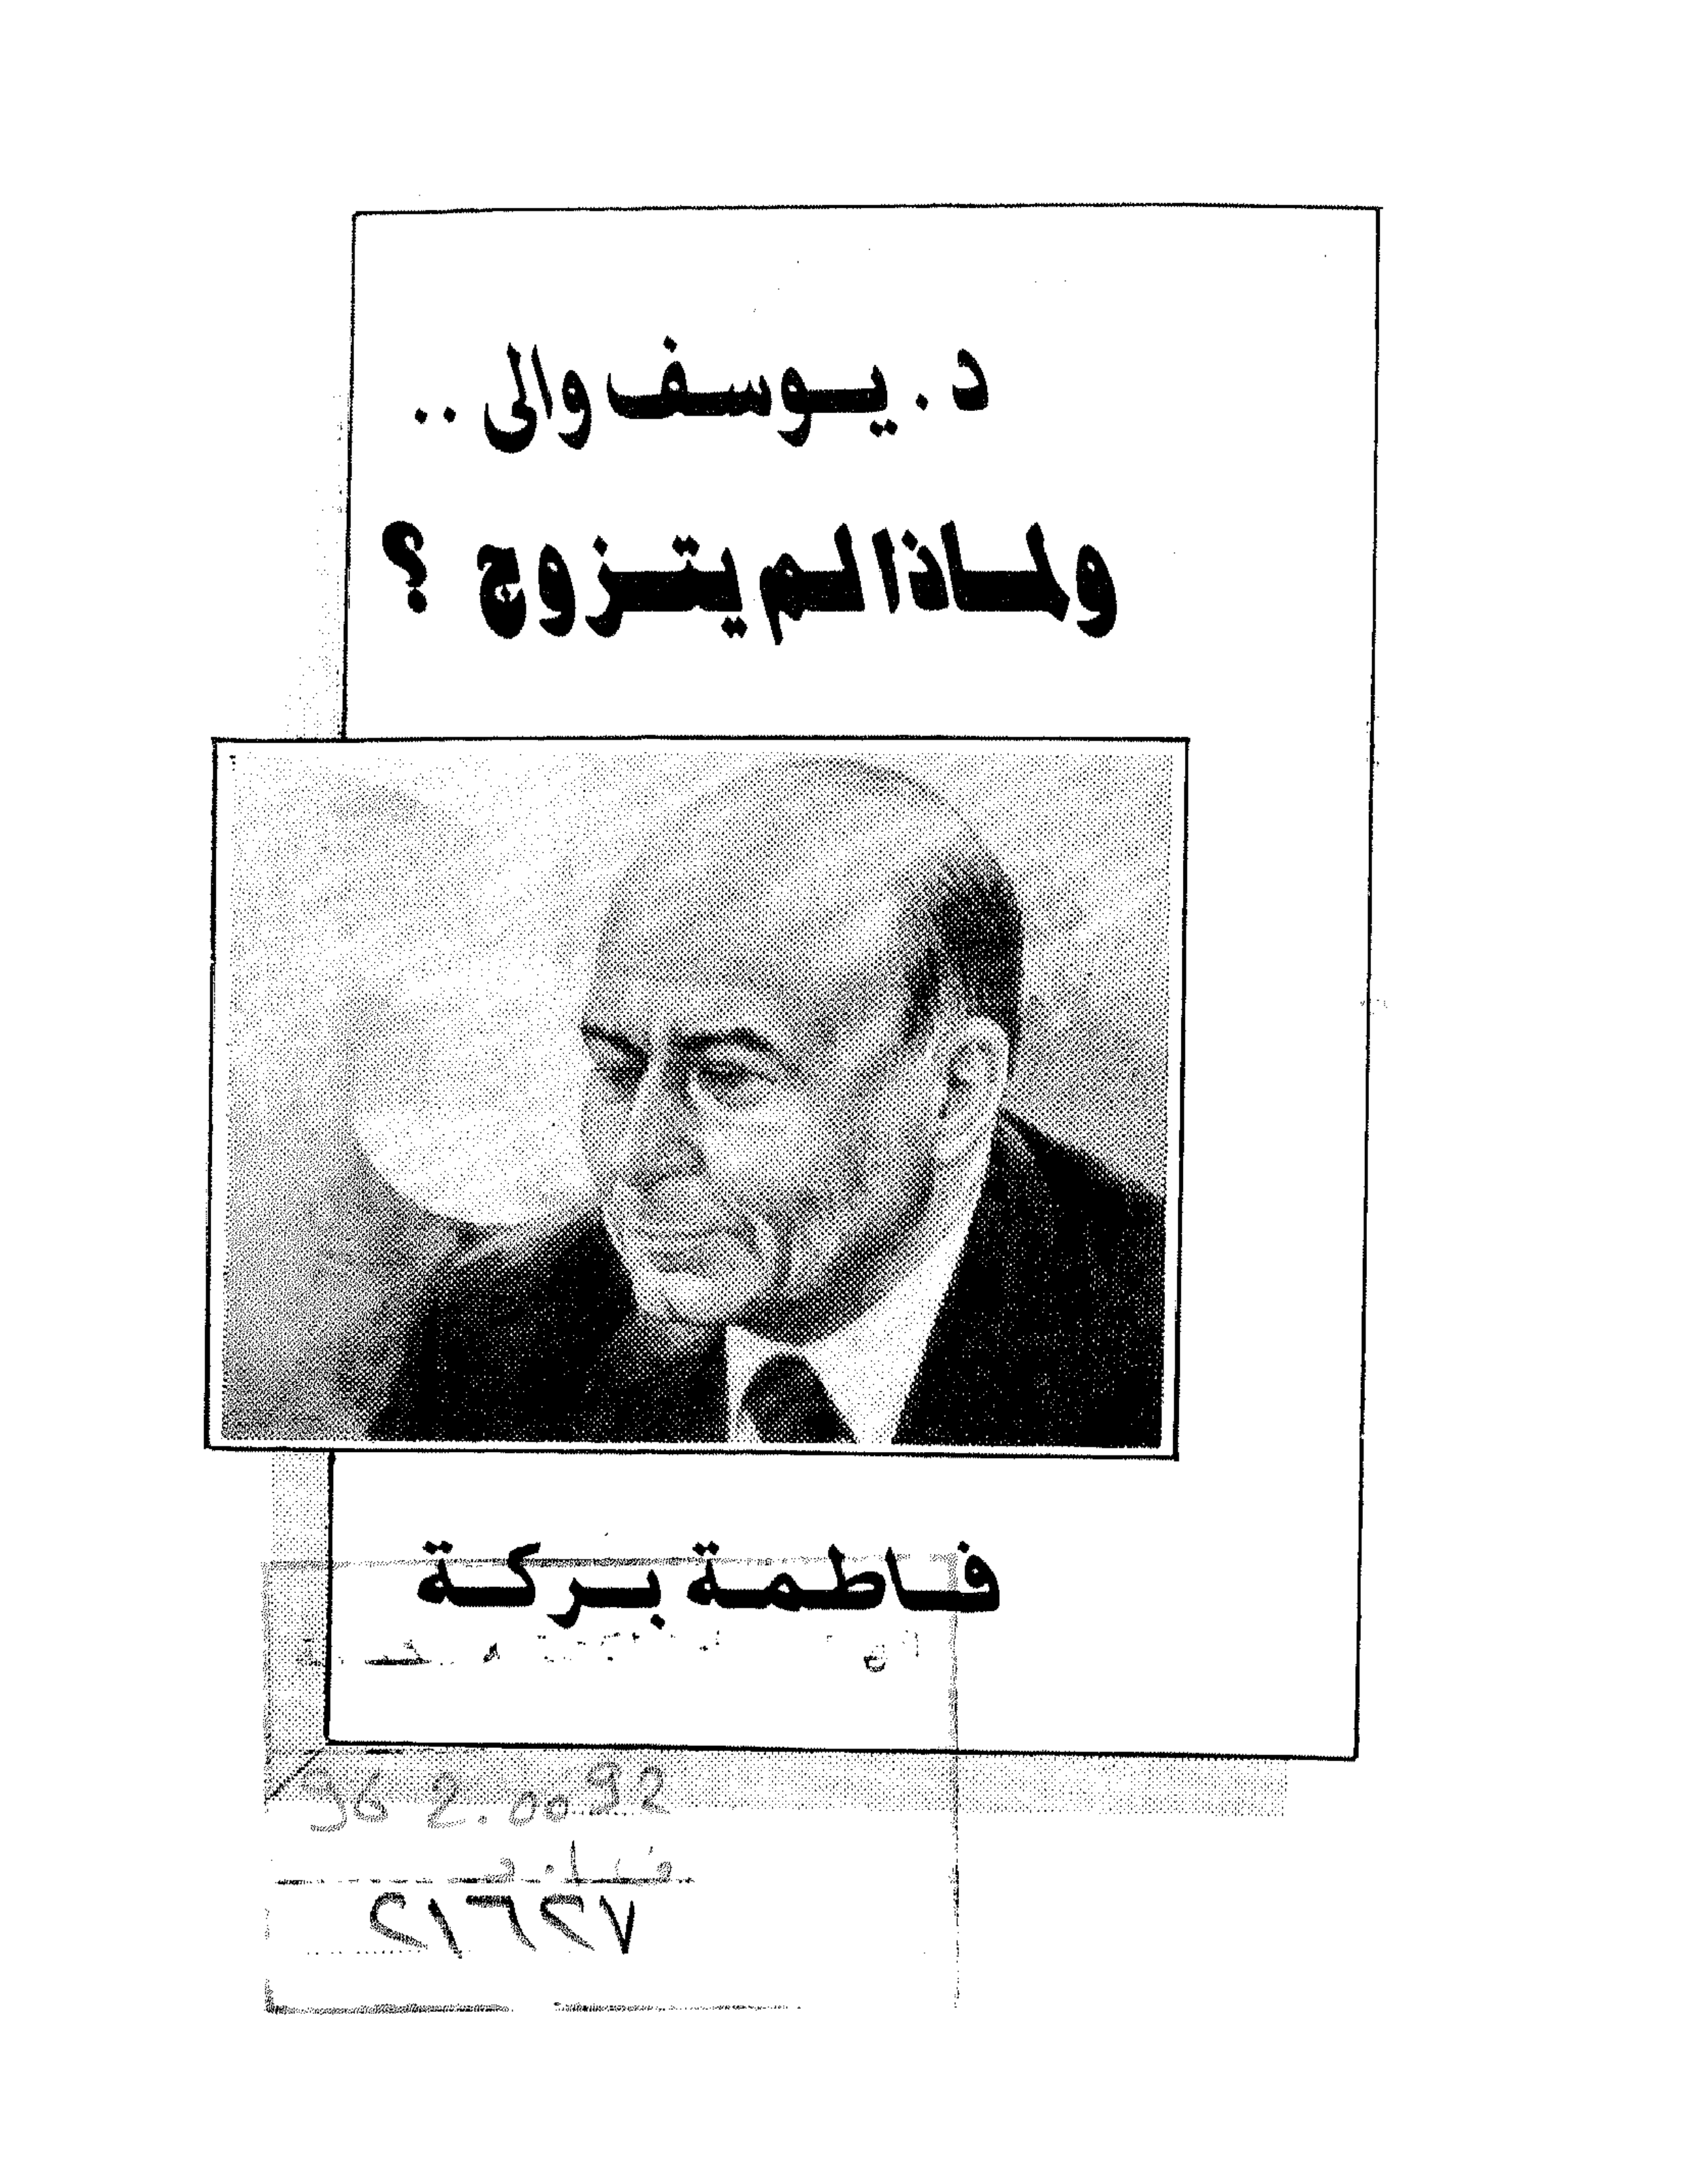 د. يوسف والى ..
ولماذا لم يتزوج ؟
فاطمة بركة
962.0092
٢١٦٢٧